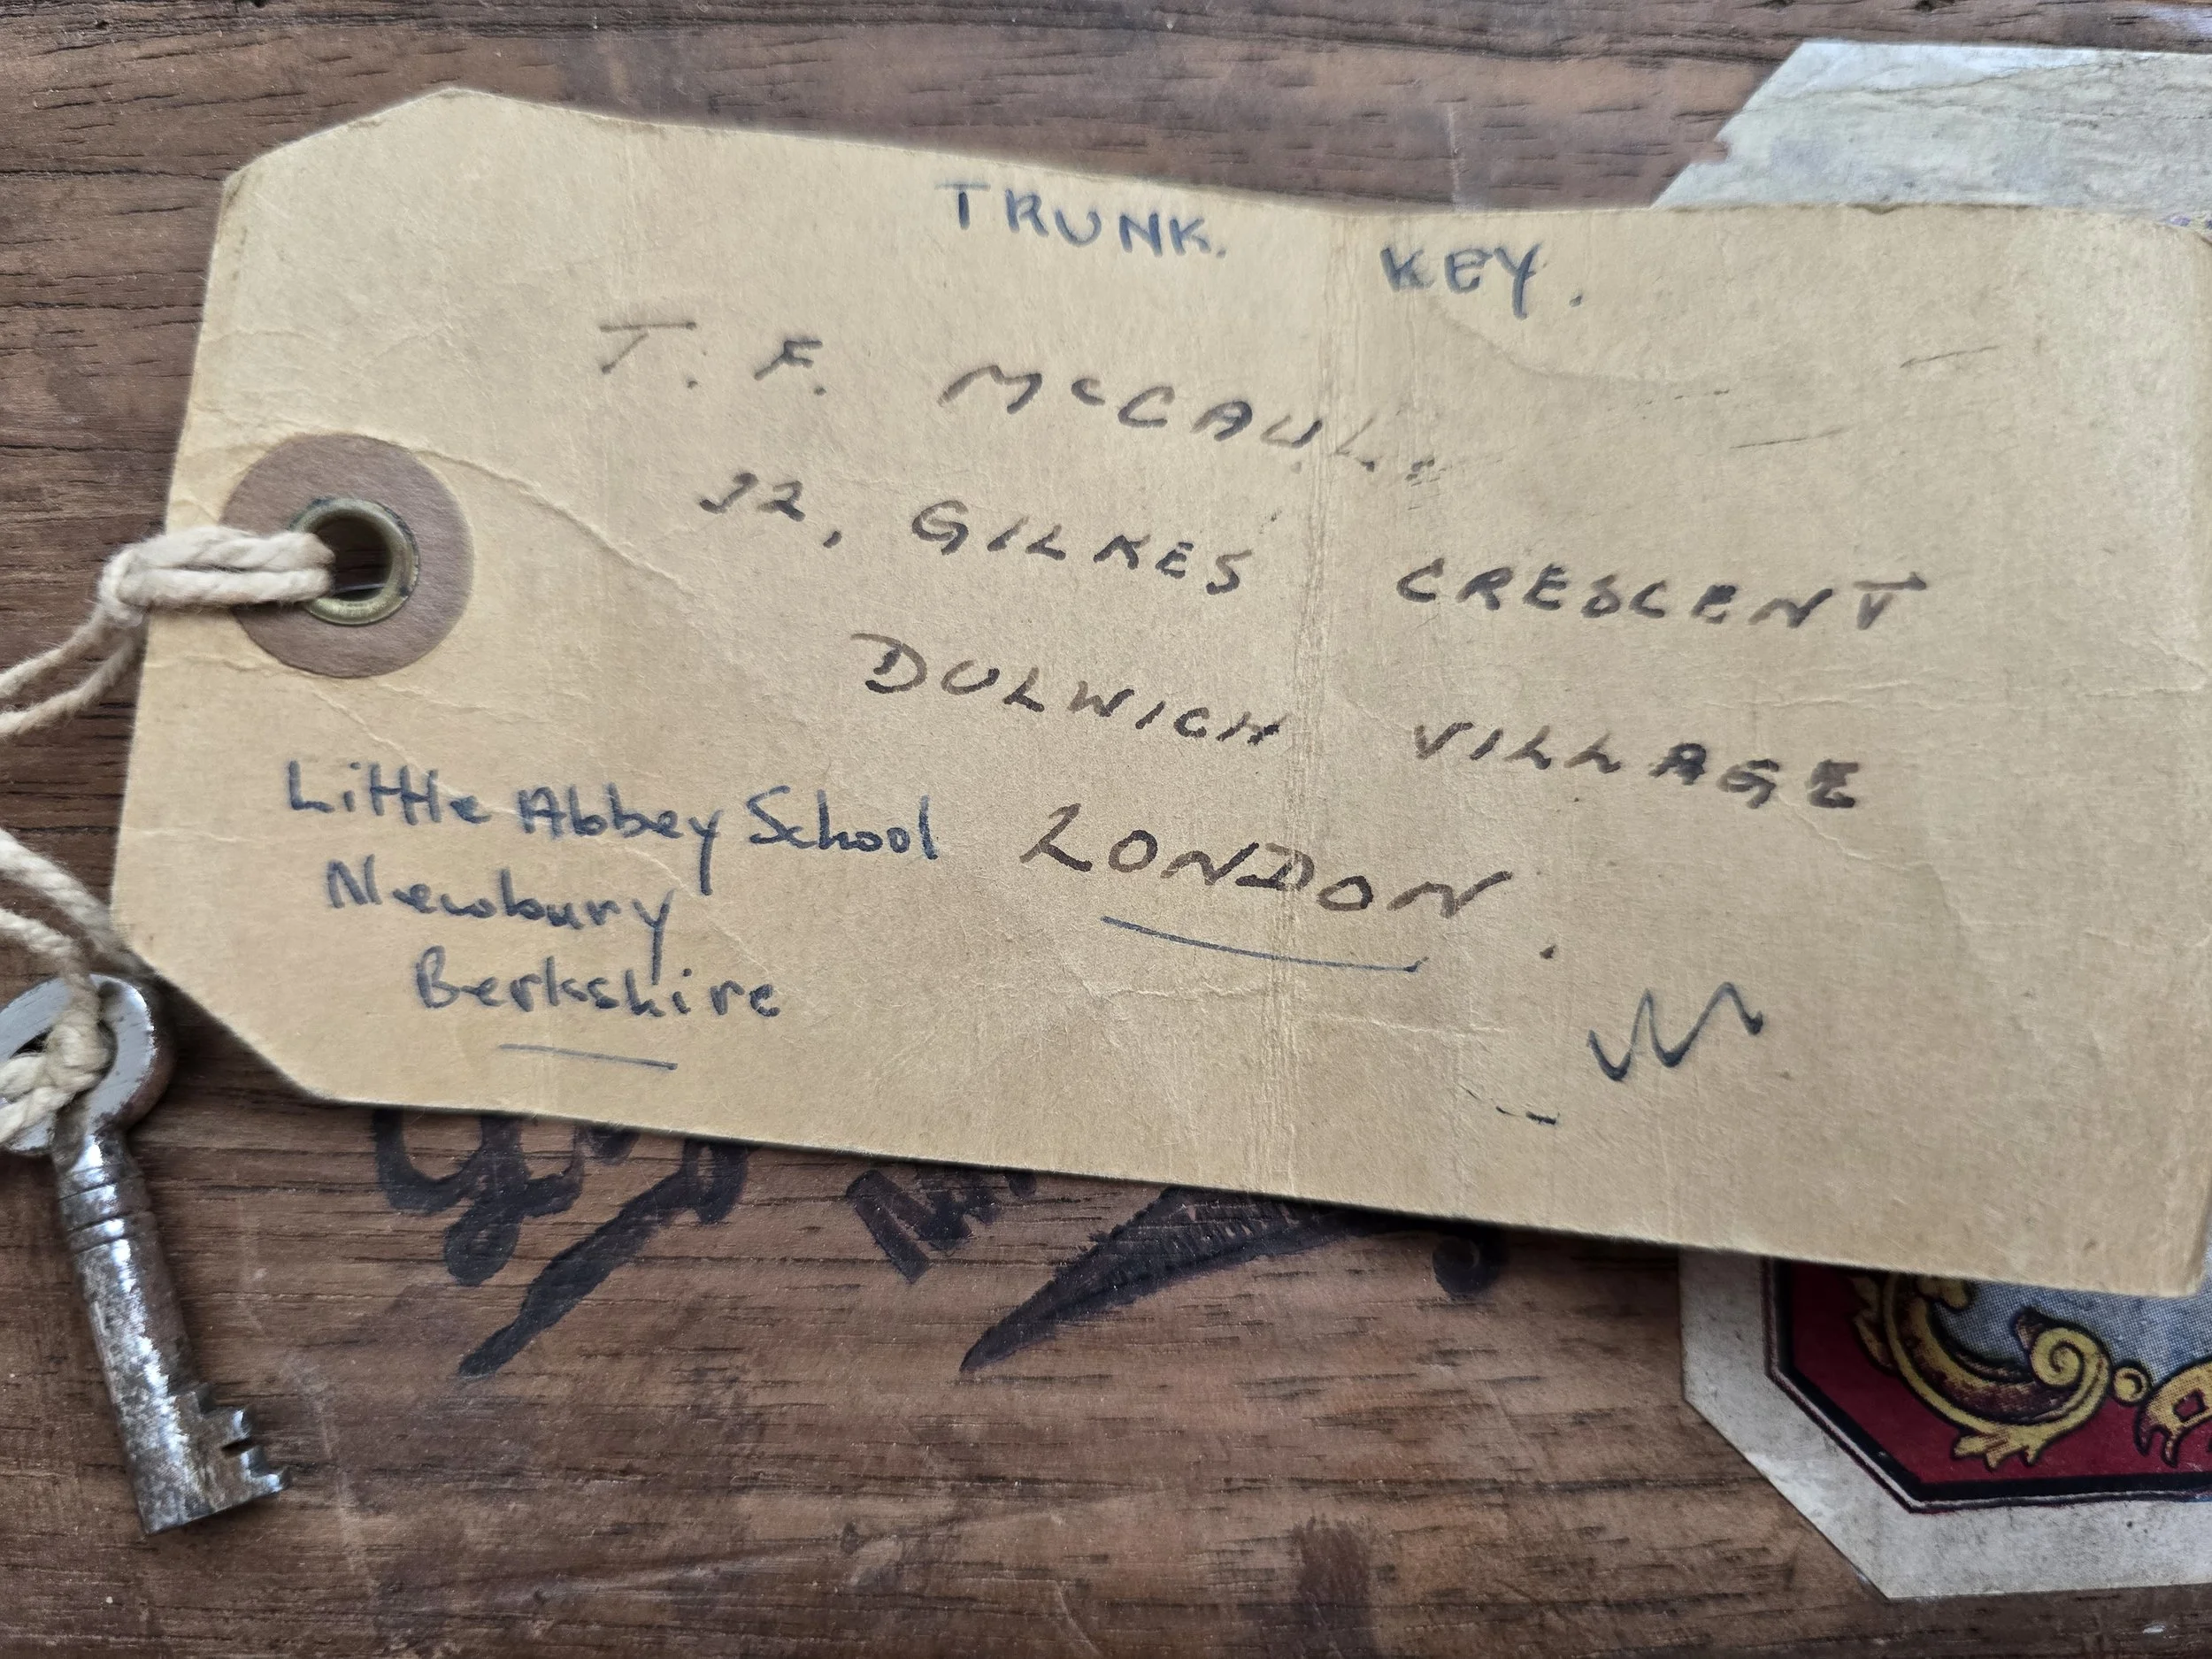 TRUNK. KEY.
T. F. McCAUL.
32, GILKES CRESCENT
DULWICH VILLAGE
LONDON.
Little Abbey School
Newbury
Berkshire